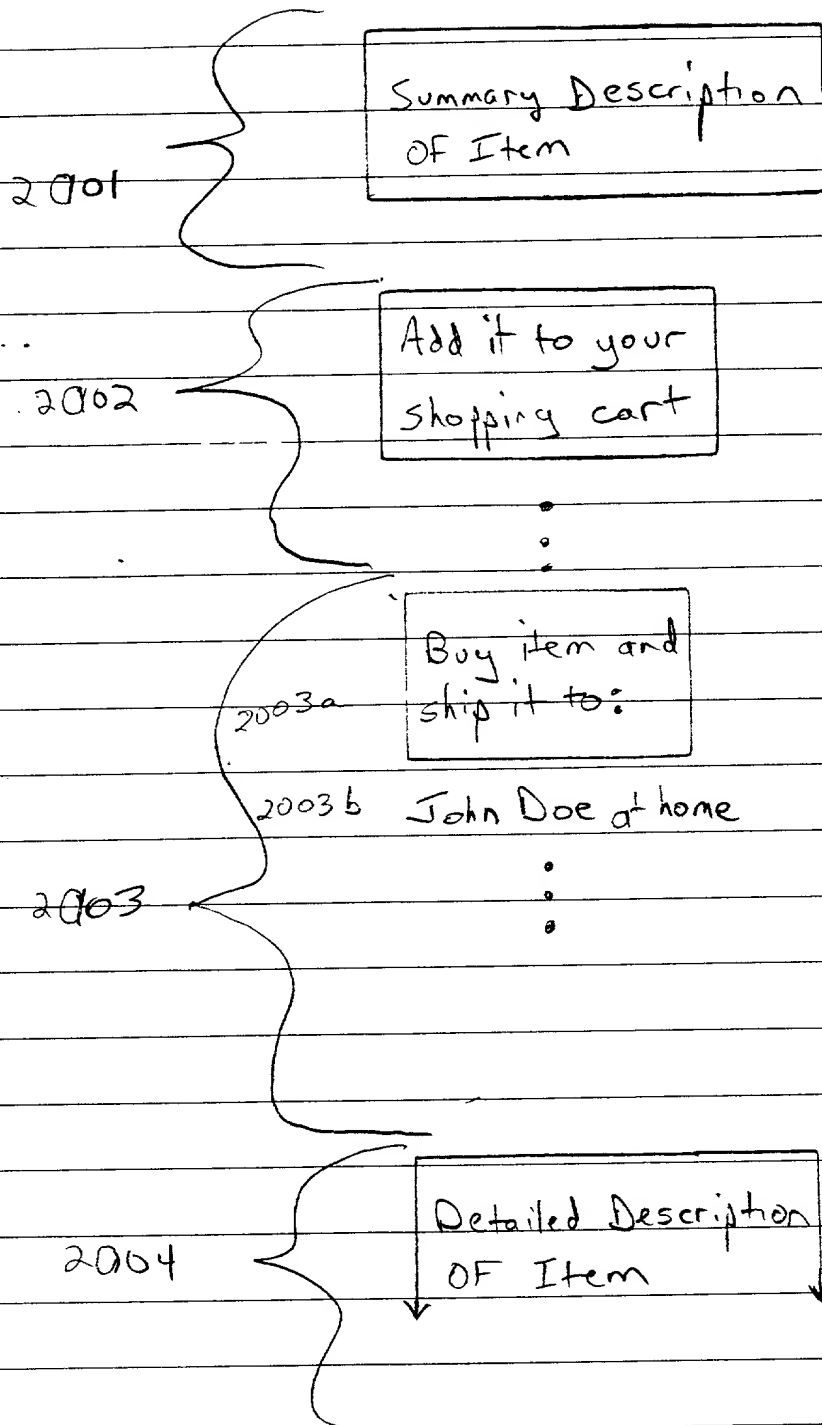 2001
Summary Description
OF Item
2002
Add it to your
shopping cart
2003
2003a
Buy item and
ship it to:
2003b John Doe at home
2004
Detailed Description
OF Item